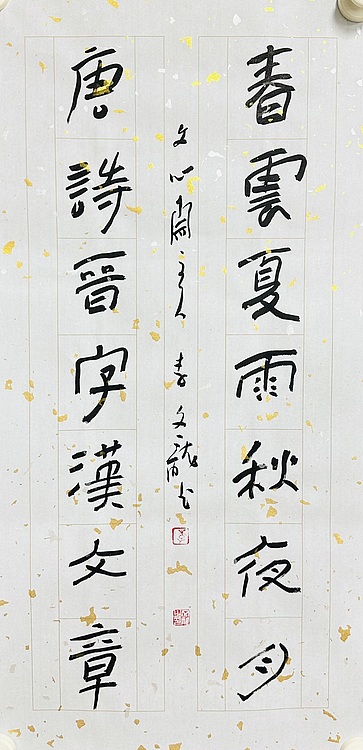 春雲夏雨秋夜月
唐詩晉字漢文章
文心閣主人 李文龍书